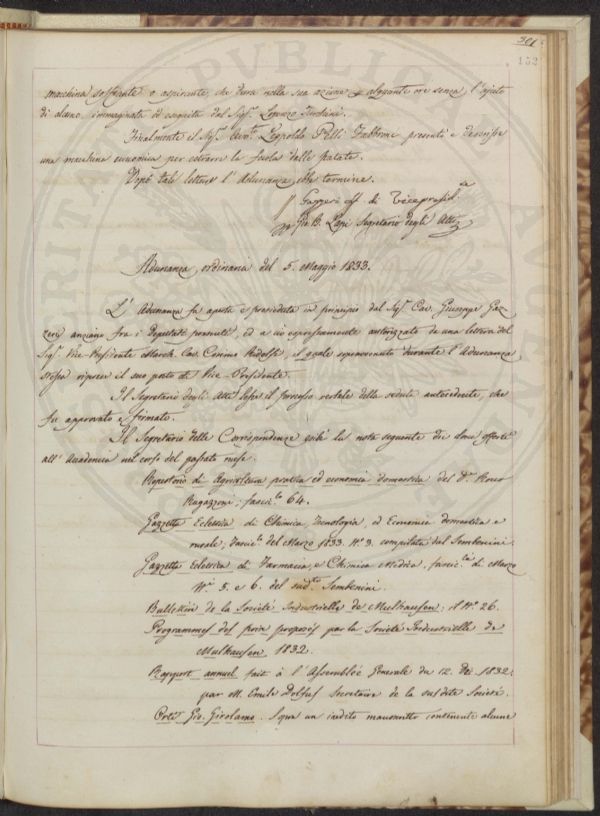 301.
152
macchina soffiante e aspirante, che dura nella sua azione alquante ore senza l'ajuto
di alcuno, immaginata ed eseguita dal Sig.
Finalmente il Sig. Leopoldo Pelli Fabbroni presentò e descrisse
una macchina economica per estrarre la fecola dalle patate.
Dopo tali letture l'Adunanza ebbe termine.
Gazzeri ff di Vicepresid.
Gio. B. Lapi Segretario degli Atti
Adunanza ordinaria del 5. Maggio 1833.
L'Adunanza fu aperta e preseduta in principio dal Sig. Cav. Giuseppe Gaz-
zeri anziano fra i Deputati presenti, ed a ciò espressamente autorizzato da una lettera del
Sig. Vice-Presidente March. Cav. Cosimo Ridolfi, il quale sopravvenuto durante l'Adunanza
stessa riprese il suo posto di Vice-Presidente.
Il Segretario degli Atti lesse il processo verbale della seduta antecedente, che
fu approvato e firmato.
Il Segretario delle Corrispondenze esibì la nota seguente dei doni offerti
all'Accademia nel corso del passato mese.
Repertorio di Agricoltura pratica ed economia domestica del D. Rocco
Ragazzoni; fascic.lo 64.
Gazzetta Eclettica di Chimica, Tecnologia, ed Economia domestica e
rurale, fascic. del Marzo 1833. N.o 3. compilata dal Sembenini.
Gazzetta Eclettica di Farmacia, e Chimica Medica, fascic.li di Marzo
N.i 5. e 6. del sud.to Sembenini.
Bulletin de la Société Industrielle de Mulhausen; N.o 26.
Programmes des prix proposés par la Société Industrielle de
Mulhausen 1832.
Rapport annuel fait à l'Assemblée Generale du 12. Dec. 1832.
par M. Emile Dolfus Secretaire de la susdite Société.
Orti Gio. Girolamo. Sopra un inedito manoscritto contenente alcune